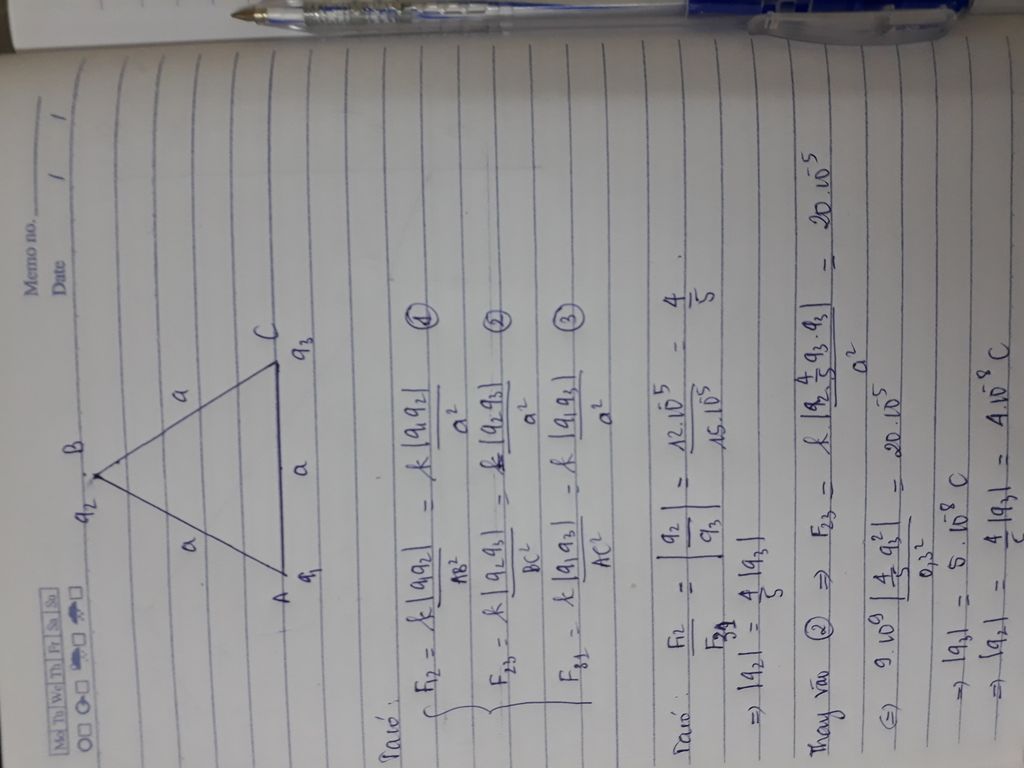 Memo no.
Mo Tu We Th Fr Sa Su
Date / /
q₂ B
a a
A a C
q₁ q₃
Ta có:
F₁₂ = k |q₁q₂| / AB² = k |q₁q₂| / a² ①
F₂₃ = k |q₂q₃| / BC² = k |q₂q₃| / a² ②
F₃₁ = k |q₁q₃| / AC² = k |q₁q₃| / a² ③
Ta có: F₁₂ / F₃₁ = |q₂ / q₃| = 12.10⁻⁵ / 15.10⁻⁵ = 4/5.
⇒ |q₂| = 4/5 |q₃|
Thay vào ② ⇒ F₂₃ = k |4/5 q₃.q₃| / a² = 20.10⁻⁵
(=) 9.10⁹ |4/5 q₃²| / 0,3² = 20.10⁻⁵
⇒ |q₃| = 5.10⁻⁸ C
⇒ |q₂| = 4/5 |q₃| = 4.10⁻⁸ C